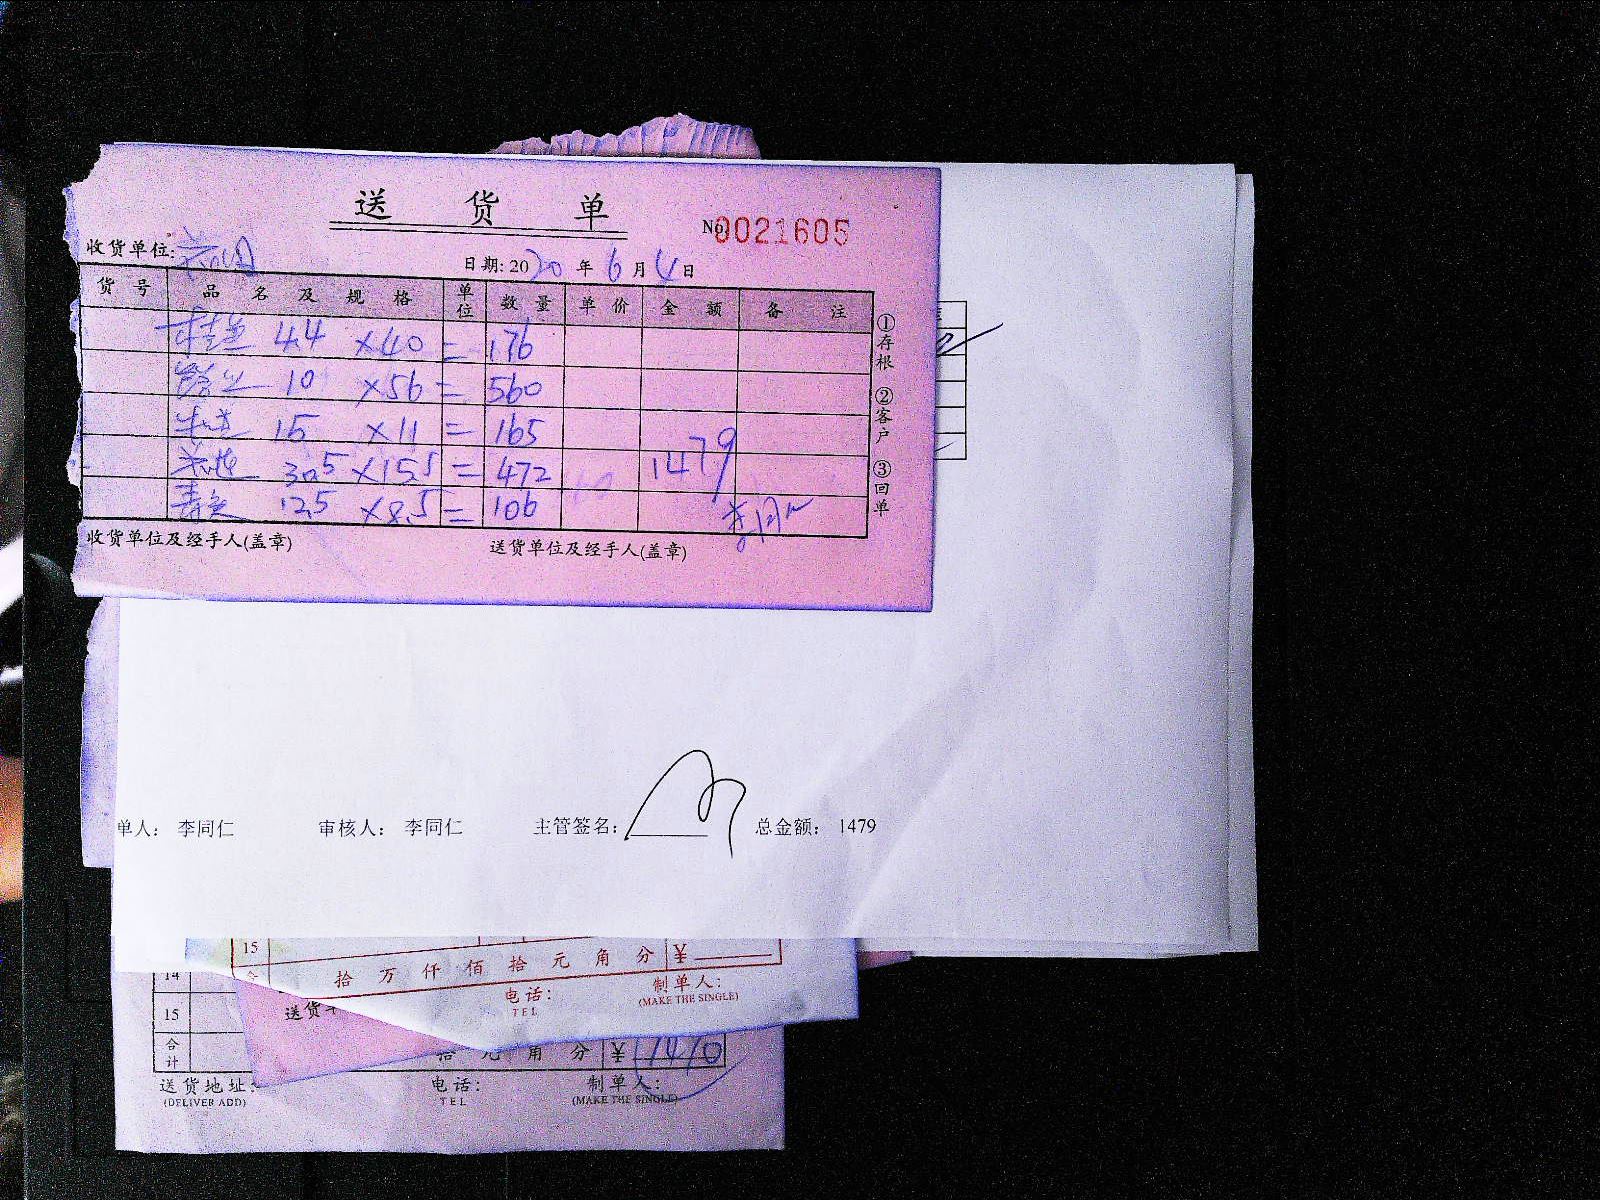 送货单
№0021605
收货单位:
日期: 2020 年 6 月 4 日
货号 品名及规格 单位 数量 单价 金额 备注
44 ×40 = 176
10 ×56 = 560
15 ×11 = 165
30.5 ×15.5 = 472 1479
12.5 ×8.5 = 106
①存根 ②客户 ③回单
收货单位及经手人(盖章) 送货单位及经手人(盖章)
单人: 李同仁 审核人: 李同仁 主管签名: 总金额: 1479
15
拾万仟佰拾元角分 ¥
电话: 制单人:
TEL (MAKE THE SINGLE)
送货
14
15
合计 拾元角分 ¥
送货地址: 电话: 制单人:
(DELIVER ADD) TEL (MAKE THE SINGLE)